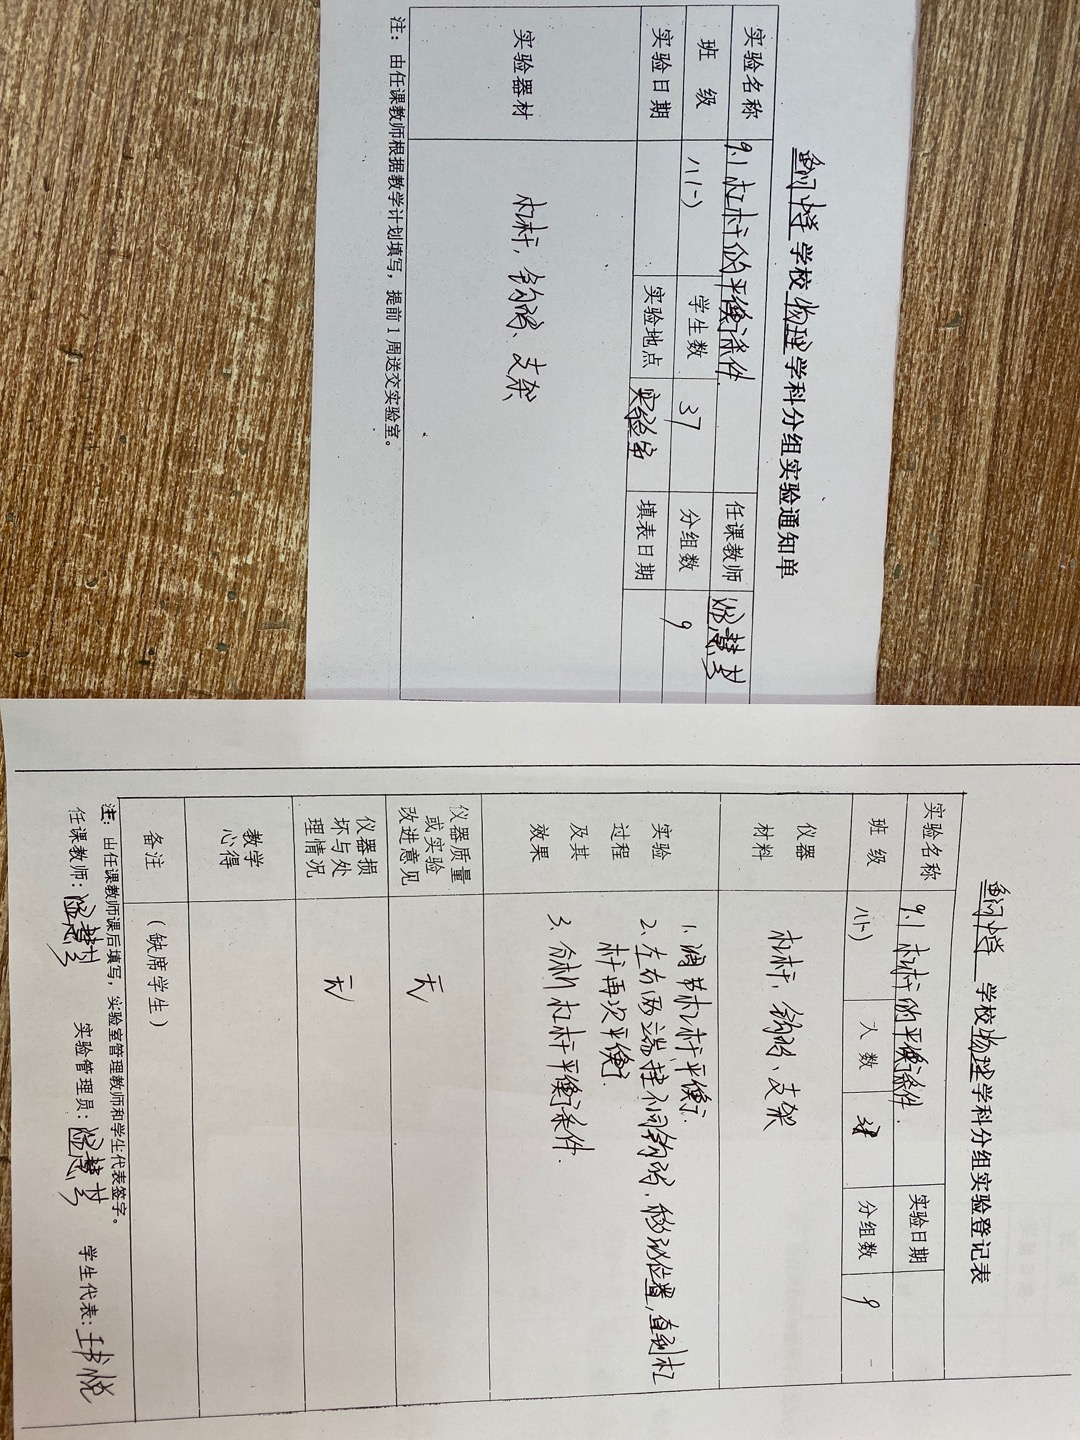 学校物理学科分组实验通知单
实验名称 9.1 杠杆的平衡条件 任课教师
班 级 八(一) 学生数 37 分组数 9
实验日期 实验地点 实验室 填表日期
实验器材 杠杆、钩码、支架
注：由任课教师根据教学计划填写，提前1周送交实验室。
学校物理学科分组实验登记表
实验名称 9.1 杠杆的平衡条件. 实验日期
班 级 八(一) 人 数 分组数 9
仪器
材料
杠杆、钩码、支架
实验
过程
及其
效果
1、调节杠杆平衡.
2、左右两端挂不同钩码，移动位置，直到杠
杆再次平衡.
3、分析杠杆平衡条件.
仪器质量
或实验
改进意见
无
仪器损
坏与处
理情况
无
教学
心得
备注 （缺席学生）
注：由任课教师课后填写，实验室管理教师和学生代表签字。
任课教师： 实验管理员： 学生代表：王书悦